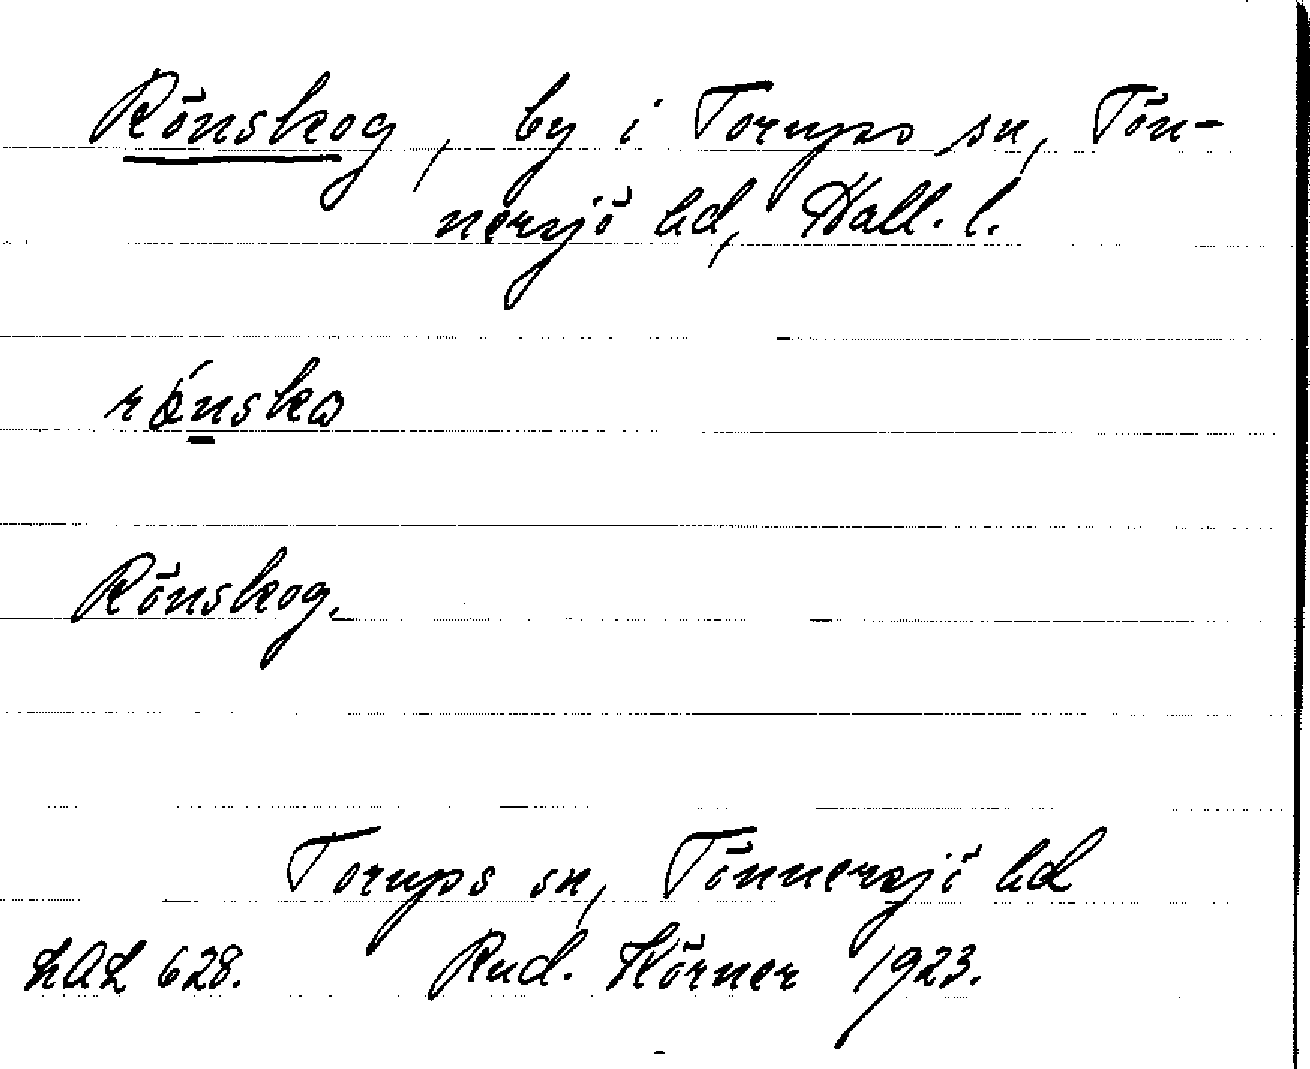 Rönskog, by i Torups sn, Tön-
nersjö hd, Hall. l.
Rönskog.
Torups sn, Tönnersjö hd
LAL 628. Rud. Körner 1923.